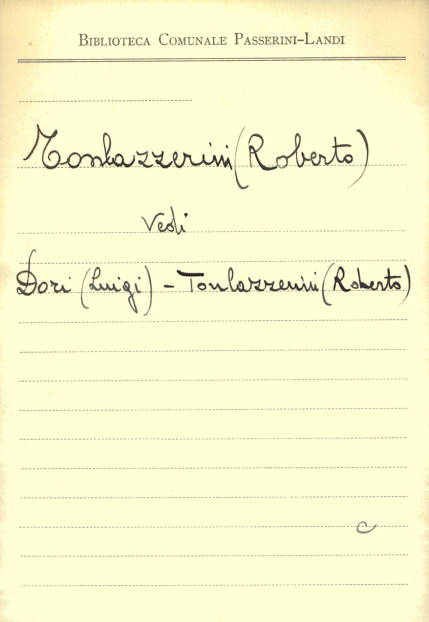 BIBLIOTECA COMUNALE PASSERINI-LANDI
Tonlazzerini (Roberto)
Vedi
Dori (Luigi) - Tonlazzerini (Roberto)
C